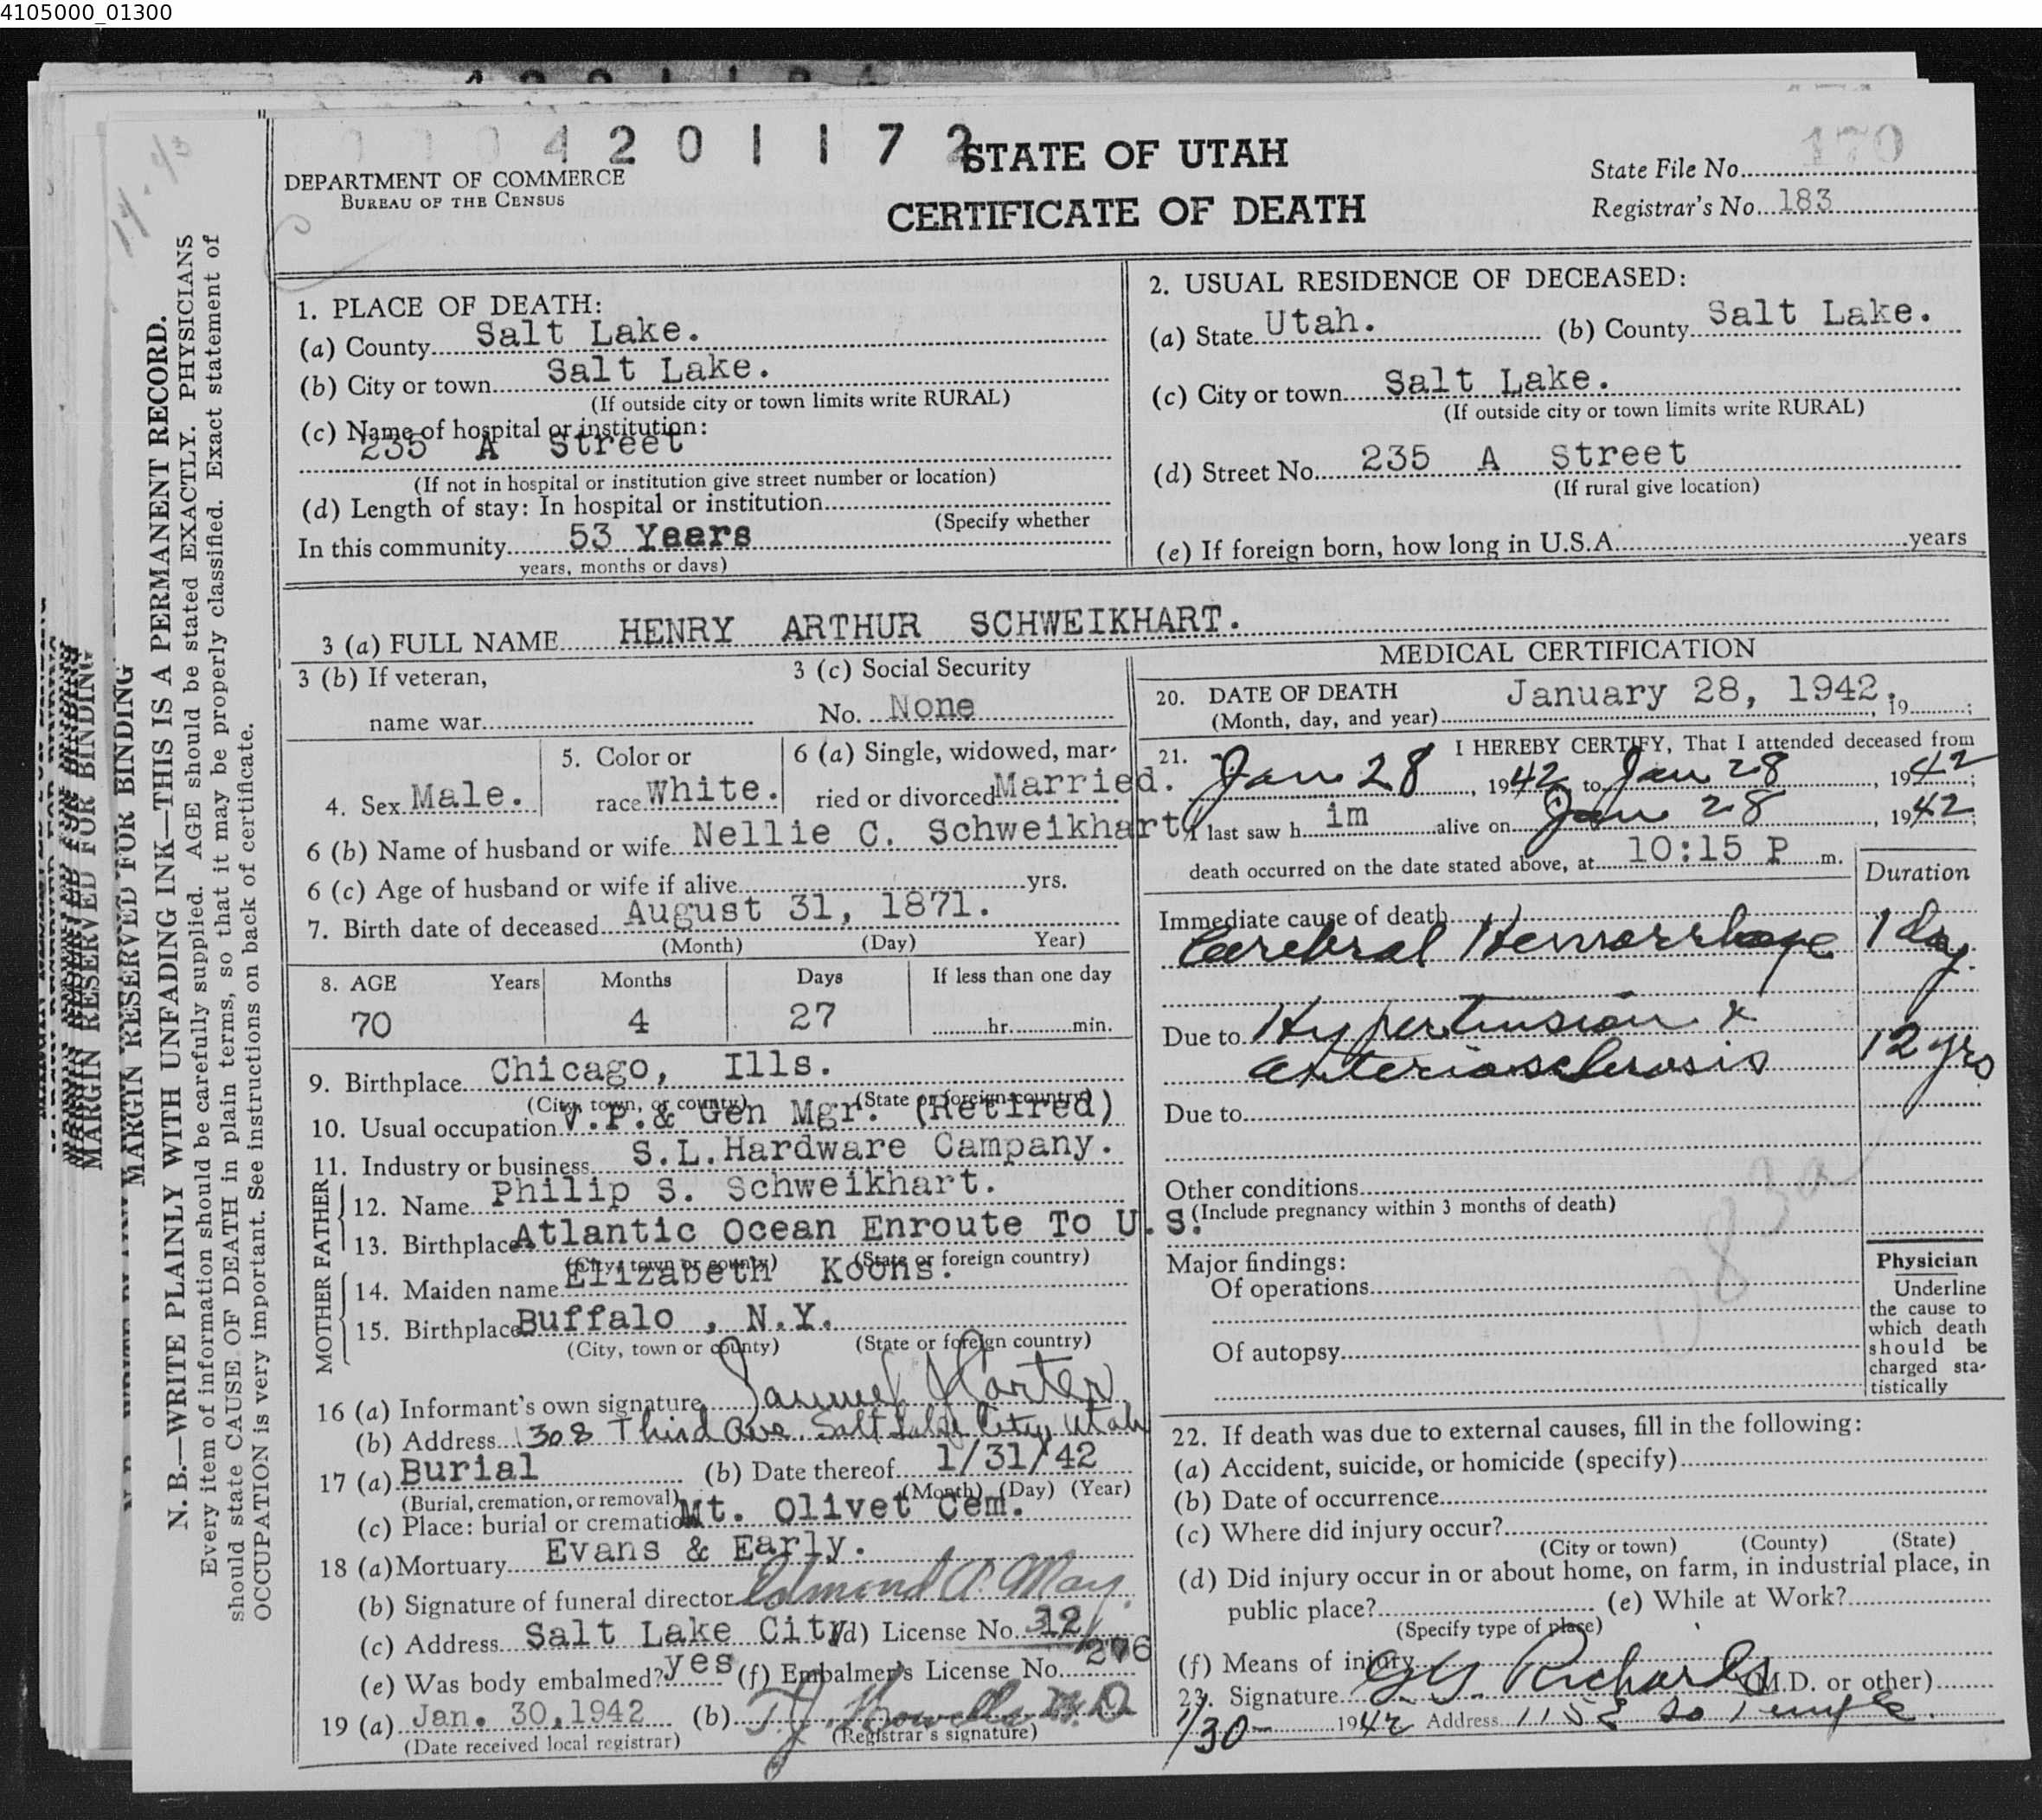 4105000_01300
4 2 0 1 1 7 2
STATE OF UTAH
CERTIFICATE OF DEATH
DEPARTMENT OF COMMERCE
BUREAU OF THE CENSUS
State File No. 170
Registrar's No. 183
MARGIN RESERVED FOR BINDING
MARGIN RESERVED FOR BINDING
N. B.—WRITE PLAINLY WITH UNFADING INK—THIS IS A PERMANENT RECORD.
Every item of information should be carefully supplied. AGE should be stated EXACTLY. PHYSICIANS
should state CAUSE OF DEATH in plain terms, so that it may be properly classified. Exact statement of
OCCUPATION is very important. See instructions on back of certificate.
1. PLACE OF DEATH:
(a) County Salt Lake.
(b) City or town Salt Lake.
(If outside city or town limits write RURAL)
(c) Name of hospital or institution:
235 A Street
(If not in hospital or institution give street number or location)
(d) Length of stay: In hospital or institution
(Specify whether
In this community 53 Years
years, months or days)
2. USUAL RESIDENCE OF DECEASED:
(a) State Utah. (b) County Salt Lake.
(c) City or town Salt Lake.
(If outside city or town limits write RURAL)
(d) Street No. 235 A Street
(If rural give location)
(e) If foreign born, how long in U.S.A. years
3 (a) FULL NAME HENRY ARTHUR SCHWEIKHART.
3 (b) If veteran,
name war
3 (c) Social Security
No. None
4. Sex Male.
5. Color or
race White.
6 (a) Single, widowed, mar-
ried or divorced Married.
6 (b) Name of husband or wife Nellie C. Schweikhart,
6 (c) Age of husband or wife if alive yrs.
7. Birth date of deceased August 31, 1871.
(Month) (Day) Year)
8. AGE Years Months Days If less than one day
70 4 27 hr. min.
9. Birthplace Chicago, Ills.
(City, town, or county) (State or foreign country)
10. Usual occupation V.P.& Gen Mgr. (Retired)
11. Industry or business S.L.Hardware Campany.
FATHER
12. Name Philip S. Schweikhart.
13. Birthplace Atlantic Ocean Enroute To U.S.
(City, town or county) (State or foreign country)
MOTHER
14. Maiden name Elizabeth Koons.
15. Birthplace Buffalo , N.Y.
(City, town or county) (State or foreign country)
16 (a) Informant's own signature Samuel Carter
(b) Address 308 Third Ave. Salt Lake City, Utah
17 (a) Burial (b) Date thereof 1/31/42
(Burial, cremation, or removal) (Month) (Day) (Year)
(c) Place: burial or cremation Mt. Olivet Cem.
18 (a) Mortuary Evans & Early.
(b) Signature of funeral director Edmond A. May.
(c) Address Salt Lake City (d) License No. 312
(e) Was body embalmed? yes (f) Embalmer's License No. 276
19 (a) Jan. 30,1942 (b) T.J. Howells M.D
(Date received local registrar) (Registrar's signature)
MEDICAL CERTIFICATION
20. DATE OF DEATH January 28, 1942.
(Month, day, and year) , 19 ;
21. I HEREBY CERTIFY, That I attended deceased from
Jan 28, 1942 to Jan 28, 1942;
I last saw h im alive on Jan 28, 1942;
death occurred on the date stated above, at 10:15 P m.
Duration
Immediate cause of death
Cerebral Hemorrhage 1 day.
Due to Hypertension &
arteriosclerosis 12 yrs
Due to
Other conditions
(Include pregnancy within 3 months of death)
83a
Major findings:
Of operations
Of autopsy
Physician
Underline
the cause to
which death
should be
charged sta-
tistically
22. If death was due to external causes, fill in the following:
(a) Accident, suicide, or homicide (specify)
(b) Date of occurrence
(c) Where did injury occur?
(City or town) (County) (State)
(d) Did injury occur in or about home, on farm, in industrial place, in
public place? (e) While at Work?
(Specify type of place)
(f) Means of injury
23. Signature G.G. Richards (M.D. or other)
1/30 1942 Address 115 E So Temple.